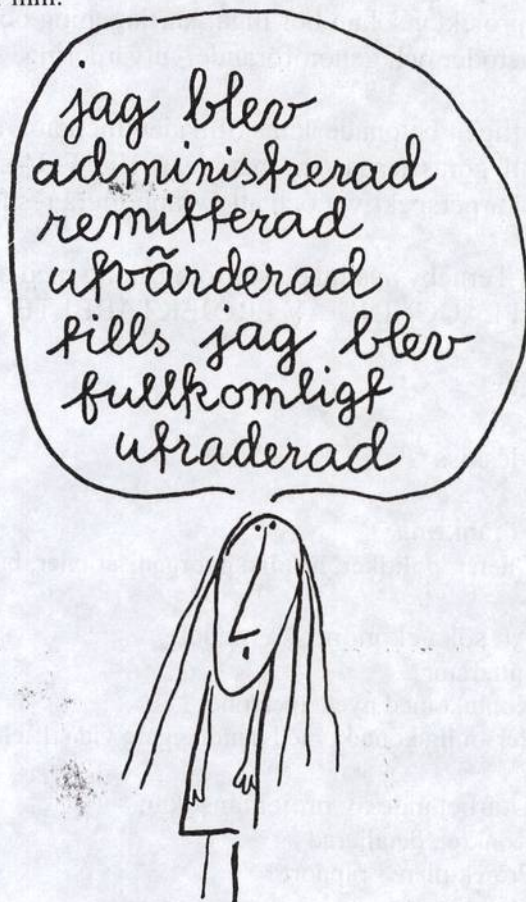 jag blev
administrerad
remitterad
utvärderad
tills jag blev
fullkomligt
utraderad